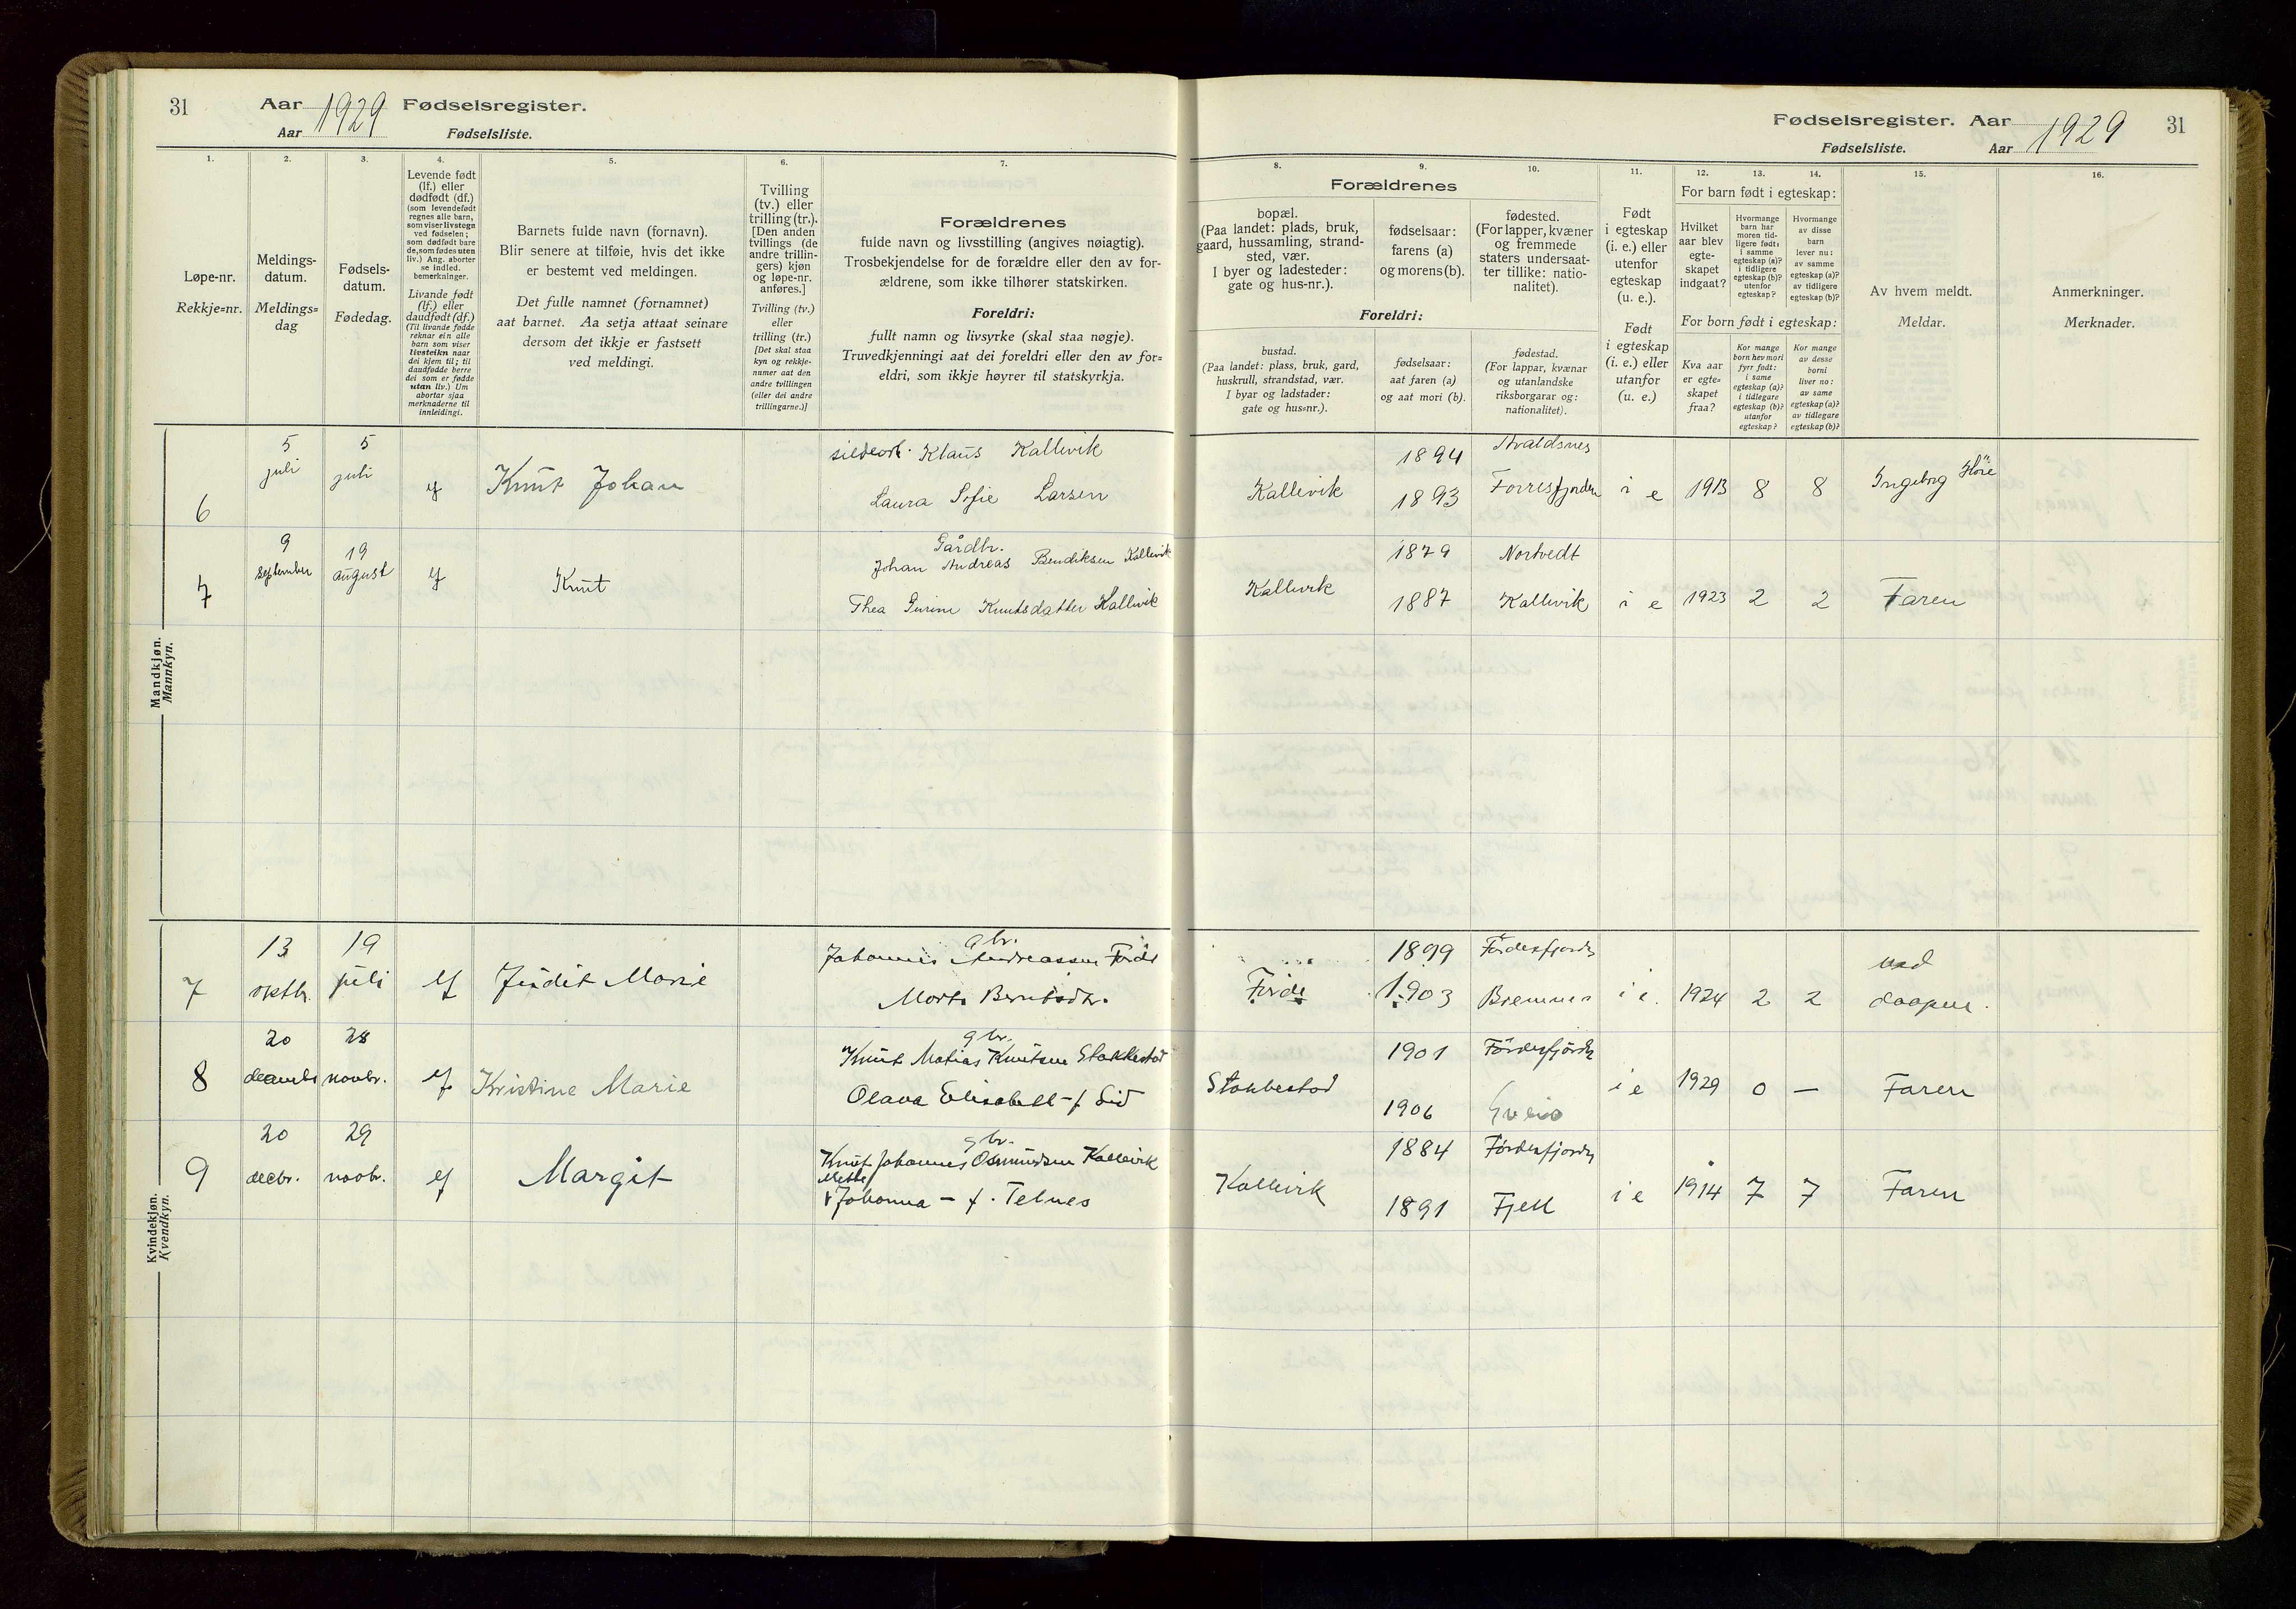 31
Aar 1929 Fødselsregister.
Aar Fødselsliste.
Fødselsregister. Aar 1929 31
Fødselsliste. Aar
1.
Løpe-nr.
Rekkje=nr.
2.
Meldings-
datum.
Meldings=
dag
3.
Fødsels-
datum.
Fødedag.
4.
Levende født
(lf.) eller
dødfødt (df.)
(som levendefødt
regnes alle barn,
som viser livstegn
ved fødselen;
som dødfødt bare
de, som fødes uten
liv.) Ang. aborter
se indled.
bemerkninger.
Livande født
(lf.) eller
daudfødt (df.)
(Til livande fødde
reknar ein alle
barn som viser
livsteikn naar
dei kjem til; til
daudfødde berre
dei som er fødde
utan liv.) Um
abortar sjaa
merknaderne til
innleidingi.
5.
Barnets fulde navn (fornavn).
Blir senere at tilføie, hvis det ikke
er bestemt ved meldingen.
Det fulle namnet (fornamnet)
aat barnet. Aa setja attaat seinare
dersom det ikkje er fastsett
ved meldingi.
6.
Tvilling
(tv.) eller
trilling (tr.).
[Den anden
tvillings (de
andre trillin-
gers) kjøn
og løpe-nr.
anføres.]
Tvilling (tv.)
eller
trilling (tr.)
[Det skal staa
kyn og rekkje-
numer aat den
andre tvillingen
(eller dei andre
trillingarne.)]
7.
Forældrenes
fulde navn og livsstilling (angives nøiagtig).
Trosbekjendelse for de forældre eller den av for-
ældrene, som ikke tilhører statskirken.
Foreldri:
fullt namn og livsyrke (skal staa nøgje).
Truvedkjenningi aat dei foreldri eller den av for=
eldri, som ikkje høyrer til statskyrkja.
Forældrenes
8.
bopæl.
(Paa landet: plads, bruk,
gaard, hussamling, strand-
sted, vær.
I byer og ladesteder:
gate og hus-nr.).
9.
fødselsaar:
farens (a)
og morens (b).
10.
fødested.
(For lapper, kvæner
og fremmede
staters undersaat-
ter tillike: natio-
nalitet).
Foreldri:
bustad.
(Paa landet: plass, bruk, gard,
huskrull, strandstad, vær.
I byar og ladstader:
gate og hus=nr.).
fødselsaar:
aat faren (a)
og aat mori (b).
fødestad.
(For lappar, kvænar
og utanlandske
riksborgarar og:
nationalitet).
11.
Født
i egteskap
(i. e.) eller
utenfor
egteskap
(u. e.).
Født
i egteskap
(i. e.) eller
utanfor
(u. e.)
For barn født i egteskap:
12.
Hvilket
aar blev
egte-
skapet
indgaat?
13.
Hvormange
barn har
moren tid-
ligere født:
i samme
egteskap (a)?
i tidligere
egteskap (b)?
utenfor
egteskap?
14.
Hvormange
av disse
barn
lever nu:
av samme
egteskap (a)?
av tidligere
egteskap (b)?
For born født i egteskap:
Kva aar
er egte=
skapet
fraa?
Kor mange
born hev mori
fyrr født:
i same
egteskap (a)?
i tidlegare
egteskap (b)?
utanfor
egteskap?
Kor mange
av desse
borni
liver no:
av same
egteskap (a)?
av tidlegare
egteskap (b)?
15.
Av hvem meldt.
Meldar.
16.
Anmerkninger.
Merknader.
Mandkjøn.
Mannkyn.
6 5 juli 5 juli Knut Johan
Klaus Kallevik
Laura Sofie Larsen
Kallevik 1894 Avaldsnes
1893 Forresfjorden i e 1913 8 8 Ingeborg
7 9 september 19 august Knut
Gårdbr.
Johan Andreas Bendiksen Kallevik
Thea Gurine Knutsdatter Kallevik
Kallevik 1879 Nortvedt
1887 Kallevik i e 1923 2 2 Faren
Kvindekjøn.
Kvendkyn.
7 13 oktbr. 19 juli lf Judit Marie
gbr.
Johannes Andreassen Førde
Førde 1899 Førdesfjorden
1903 Bremnes i e. 1924 2 2 ved
daapen.
8 20 28 novbr. lf Kristine Marie
gbr.
Knut Matias Knutsen Stakkestad
Olava Elisabeth f Lid
Stakkestad 1901 Førdesfjorden
1906 Sveio i e 1929 0 — Faren
9 20 decbr. 29 novbr. lf Margit
gbr.
Knut Johannes Osmundsen Kallevik
Mette
Johanna — f. Telnes
Kallevik 1884 Førdesfjorden
1891 Fjell i e 1914 7 7 Faren